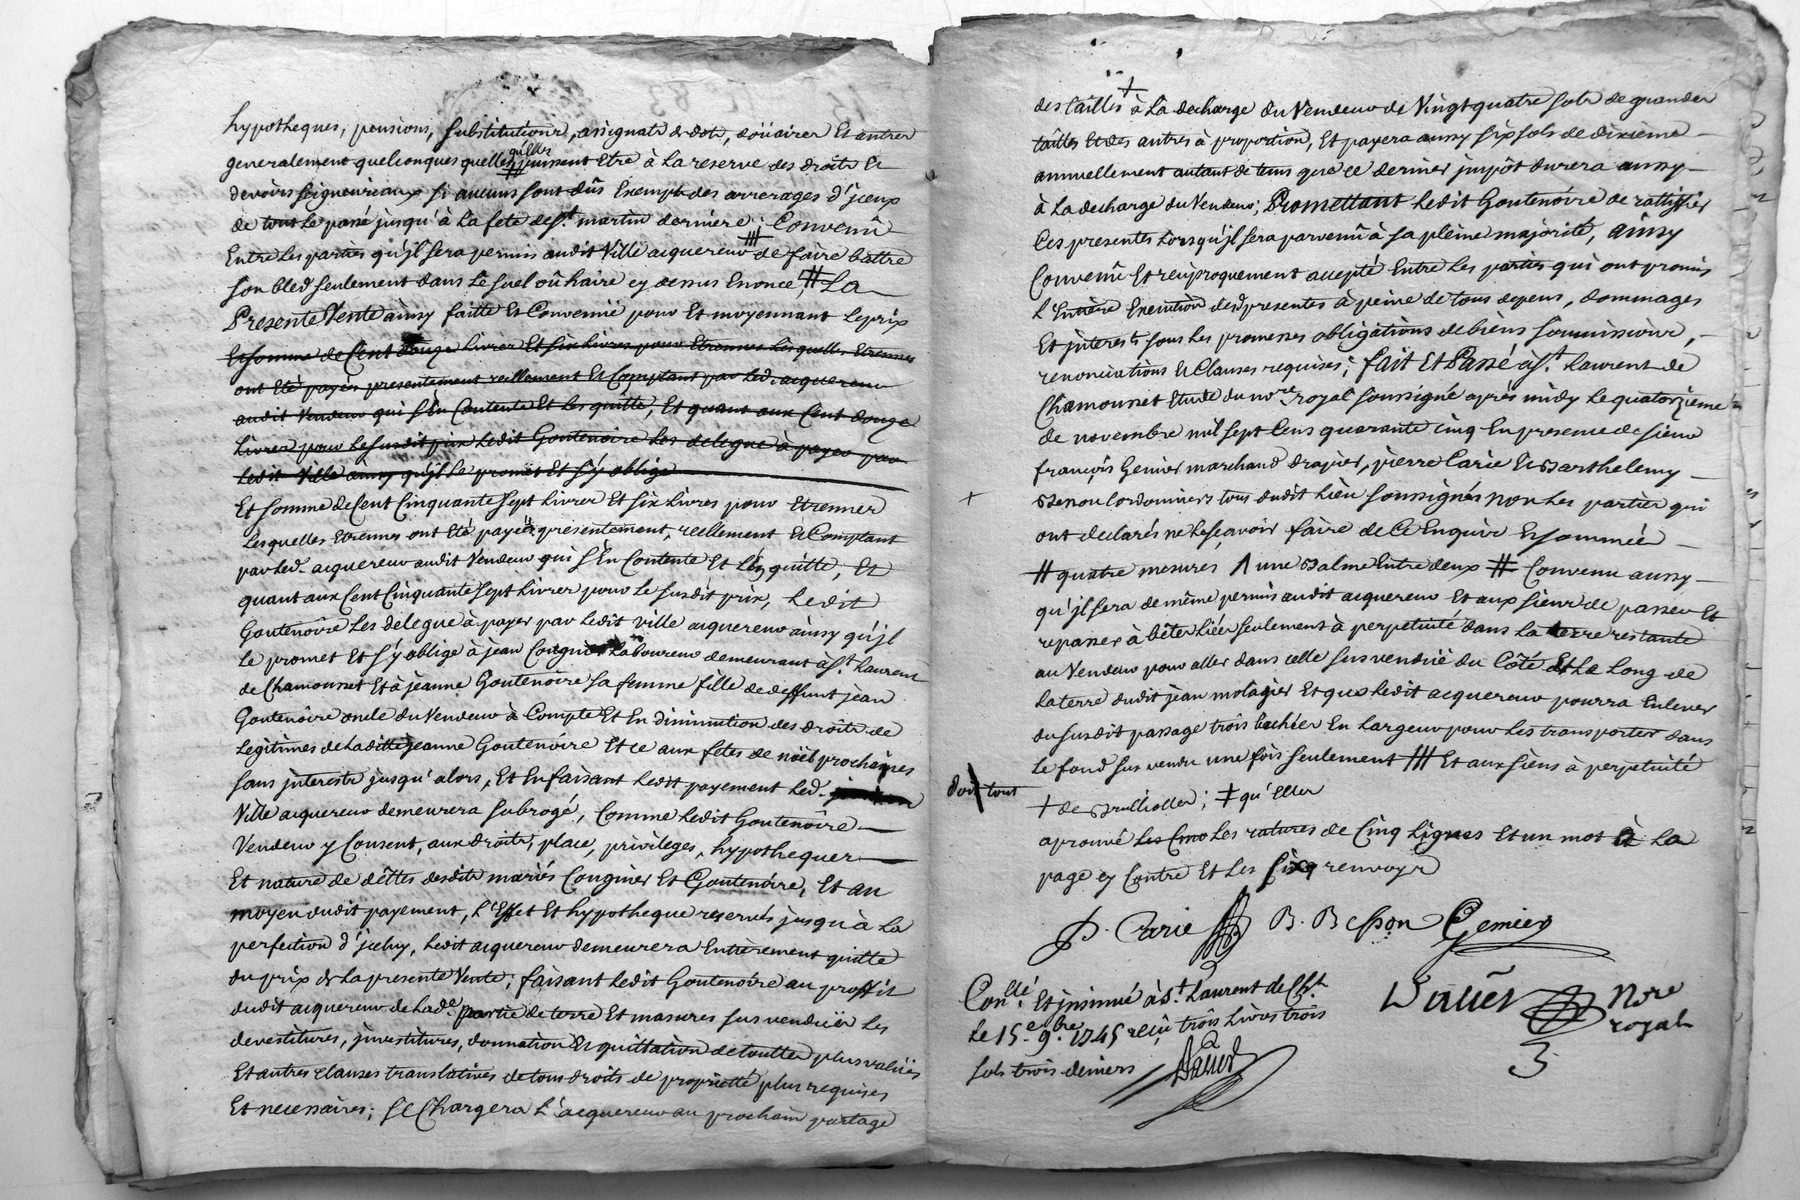 hypotheques, pensions, substitutions, assignats de dots, doüaires Et autres
generalement quelconques quelles ‡ puissent Etre à La reserve des droits Et
qu'elles
devoirs seigneuriaux si aucuns sont dûs Exempts des arrerages d'jceux
de tout Le passé jusqu'à La fete de St. martin derniere; Convenû
Entre Les parties qu'jl sera permis audit Ville acquereur # de faire battre
son bled seulement dans Le suel oû haire cy dessus Enoncé, # La
Presente Vente ainsy faitte Et Convenuë pour Et moyennant Le prix
Et somme de Cent douze Livres Et six Livres pour Etrennes Lesquelles Etrennes
ont Eté payés presentement reellement Et Comptant par Led. acquereur
audit Vendeur qui s'En Contente Et Les quitte, Et quant aux Cent douze
Livres pour Le susdit prix Ledit Goutenoire Les delegue à payer par
Ledit Ville ainsy qu'jl Le promet Et s'y oblige
Et somme de Cent Cinquante sept Livres Et six Livres pour Etrennes
Lesquelles Etrennes ont Eté payéës presentement, reellement Et Comptant
par Led. acquereur audit Vendeur qui s'En Contente Et L'en quitte, Et
quant aux Cent Cinquante sept Livres pour Le susdit prix, Ledit
Goutenoire Les delegue à payer par Ledit ville acquereur ainsy qu'jl
Le promet Et s'y oblige à jean Cougnier Laboureur demeurant à St. Laurent
de Chamousset Et à jeanne Goutenoire sa femme fille de deffunt jean
Goutenoire oncle du Vendeur à Compte Et En diminution des droits de
Legitimes de Laditte jeanne Goutenoire Et ce aux fetes de noël prochaines
sans jnterests jusqu'alors, Et En faisant Ledit payement Led.
Ville acquereur demeurera subrogé, Comme Ledit Goutenoire
Vendeur y Consent, aux droits, place, privileges, hypotheques
Et nature de dêttes desdits mariés Cougnier Et Goutenoire, Et au
moyen dudit payement, L'Effet Et hypotheque reservés jusqu'à La
perfection d'jceluy, Ledit acquereur demeurera Entierement quitte
du prix de La presente Vente; faisant Ledit Goutenoire au proffit
dudit acquereur de Lade. partie de terre Et masures sus venduës Les
devestitures, jnvestitures, donnation Et quittation de touttes plus valuës
Et autres clauses translatives de tous droits de proprieté plus requises
Et necessaires; se Chargera L'acquereur au prochain partage
des tailles + à La decharge du Vendeur de Vingt quatre sols de grandes
tailles Et des autres à proportion, Et payera aussy six sols de dixième
annuellement autant de tems que ce dernier jmpôt durera aussy
à La decharge du Vendeur; Promettant Ledit Goutenoire de rattiffier
Ces presentes Lorsqu'jl sera parvenû à sa pleine majorité, ainsy
Convenû Et reciproquement accepté Entre Les parties qui ont promis
L'Entiere Execution desd. presentes à peine de tous depens, dommages
Et jnterests sous Les promesses obligations de biens soumissions,
renonciations Et Clauses requises; fait Et Passé à St. Laurent de
Chamousset Etude du nore. royal soussigné après midy Le quatorzieme
de novembre mil sept Cens quarante cinq En presence de sieur
françois Gemier marchand drapier, pierre Carie Et Barthelemy
Besson Cordonniers tous dudit Lieu soussignés non Les parties qui
+
ont declarés ne Le sçavoir faire de Ce Enquis Et sommés
# quatre mesures 1 une Balme Entre deux # Convenu aussy
qu'jl sera de même permis audit acquereur Et aux siens de passer Et
repasser à bêtes Liées seulement à perpetuité dans La terre restante
au Vendeur pour aller dans celle sus venduë du Côté Et Le Long de
La terre dudit jean molagier Et que Ledit acquereur pourra Enlever
du susdit passage trois bechées En Largeur pour Les transporter dans
Le fond sus vendu une fois seulement # Et aux siens à perpetuité
dont tout
+ de Brullioles; ‡ qu'elles
aprouvé Les Cinq Les ratures de Cinq Lignes Et un mot à La
page cy Contre Et Les six renvoys
P. Carie B. Besson Gemier
Conllé. Et jnsinué à St. Laurent de Cht.
Le 15e. 9bre 1745 reçû trois Livres trois
sols trois deniers
Nore
royal